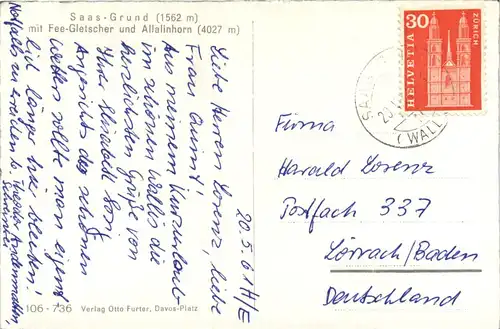 Saas-Grund (1562 m)
mit Fee-Gletscher und Allalinhorn (4027 m)
20.5.61 H/E
Liebe Herren Lorenz, liebe
Frau Quint!
Aus meinem Kurzurlaub
im schönen Wallis die
herzlichsten Grüße von
Ihrer Elisabeth
Angesichts des schönen
Wetters sollte man eigent
lich länger hier bleiben!
Notfalls zu erreichen b. Theodor Andenmatten,
Schreiner
106 - 736 Verlag Otto Furter, Davos-Platz
HELVETIA
30
ZÜRICH
SAAS
(WALL
Firma
Harald Lorenz
Postfach 337
Lörrach/Baden
Deutschland